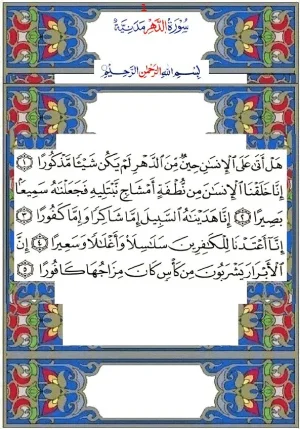 سُورَةُ الدَّهْرِ مَدَنِيَّة
بِسْمِ اللهِ الرَّحْمٰنِ الرَّحِيْمِ
هَلْ أَتَىٰ عَلَى ٱلْإِنسَٰنِ حِينٌ مِّنَ ٱلدَّهْرِ لَمْ يَكُن شَيْـًٔا مَّذْكُورًا ١
إِنَّا خَلَقْنَا ٱلْإِنسَٰنَ مِن نُّطْفَةٍ أَمْشَاجٍ نَّبْتَلِيهِ فَجَعَلْنَٰهُ سَمِيعًۢا
بَصِيرًا ٢ إِنَّا هَدَيْنَٰهُ ٱلسَّبِيلَ إِمَّا شَاكِرًا وَإِمَّا كَفُورًا ٣
إِنَّآ أَعْتَدْنَا لِلْكَٰفِرِينَ سَلَٰسِلَا۟ وَأَغْلَٰلًا وَسَعِيرًا ٤ إِنَّ
ٱلْأَبْرَارَ يَشْرَبُونَ مِن كَأْسٍ كَانَ مِزَاجُهَا كَافُورًا ٥